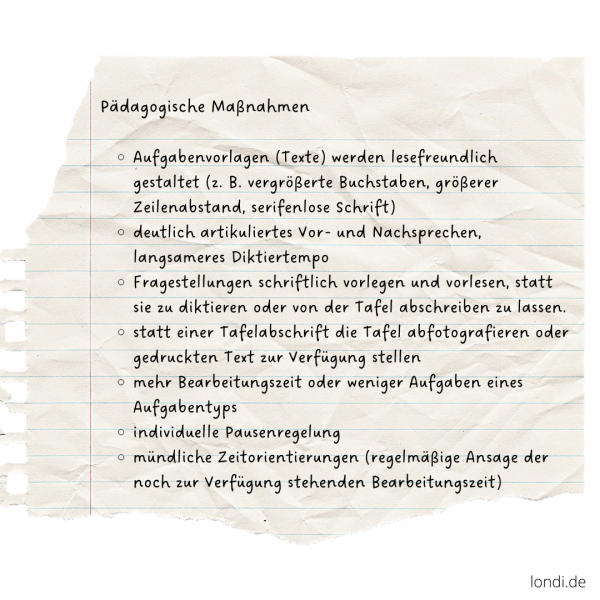 Pädagogische Maßnahmen
○ Aufgabenvorlagen (Texte) werden lesefreundlich
gestaltet (z. B. vergrößerte Buchstaben, größerer
Zeilenabstand, serifenlose Schrift)
○ deutlich artikuliertes Vor- und Nachsprechen,
langsameres Diktiertempo
○ Fragestellungen schriftlich vorlegen und vorlesen, statt
sie zu diktieren oder von der Tafel abschreiben zu lassen.
○ statt einer Tafelabschrift die Tafel abfotografieren oder
gedruckten Text zur Verfügung stellen
○ mehr Bearbeitungszeit oder weniger Aufgaben eines
Aufgabentyps
○ individuelle Pausenregelung
○ mündliche Zeitorientierungen (regelmäßige Ansage der
noch zur Verfügung stehenden Bearbeitungszeit)
londi.de